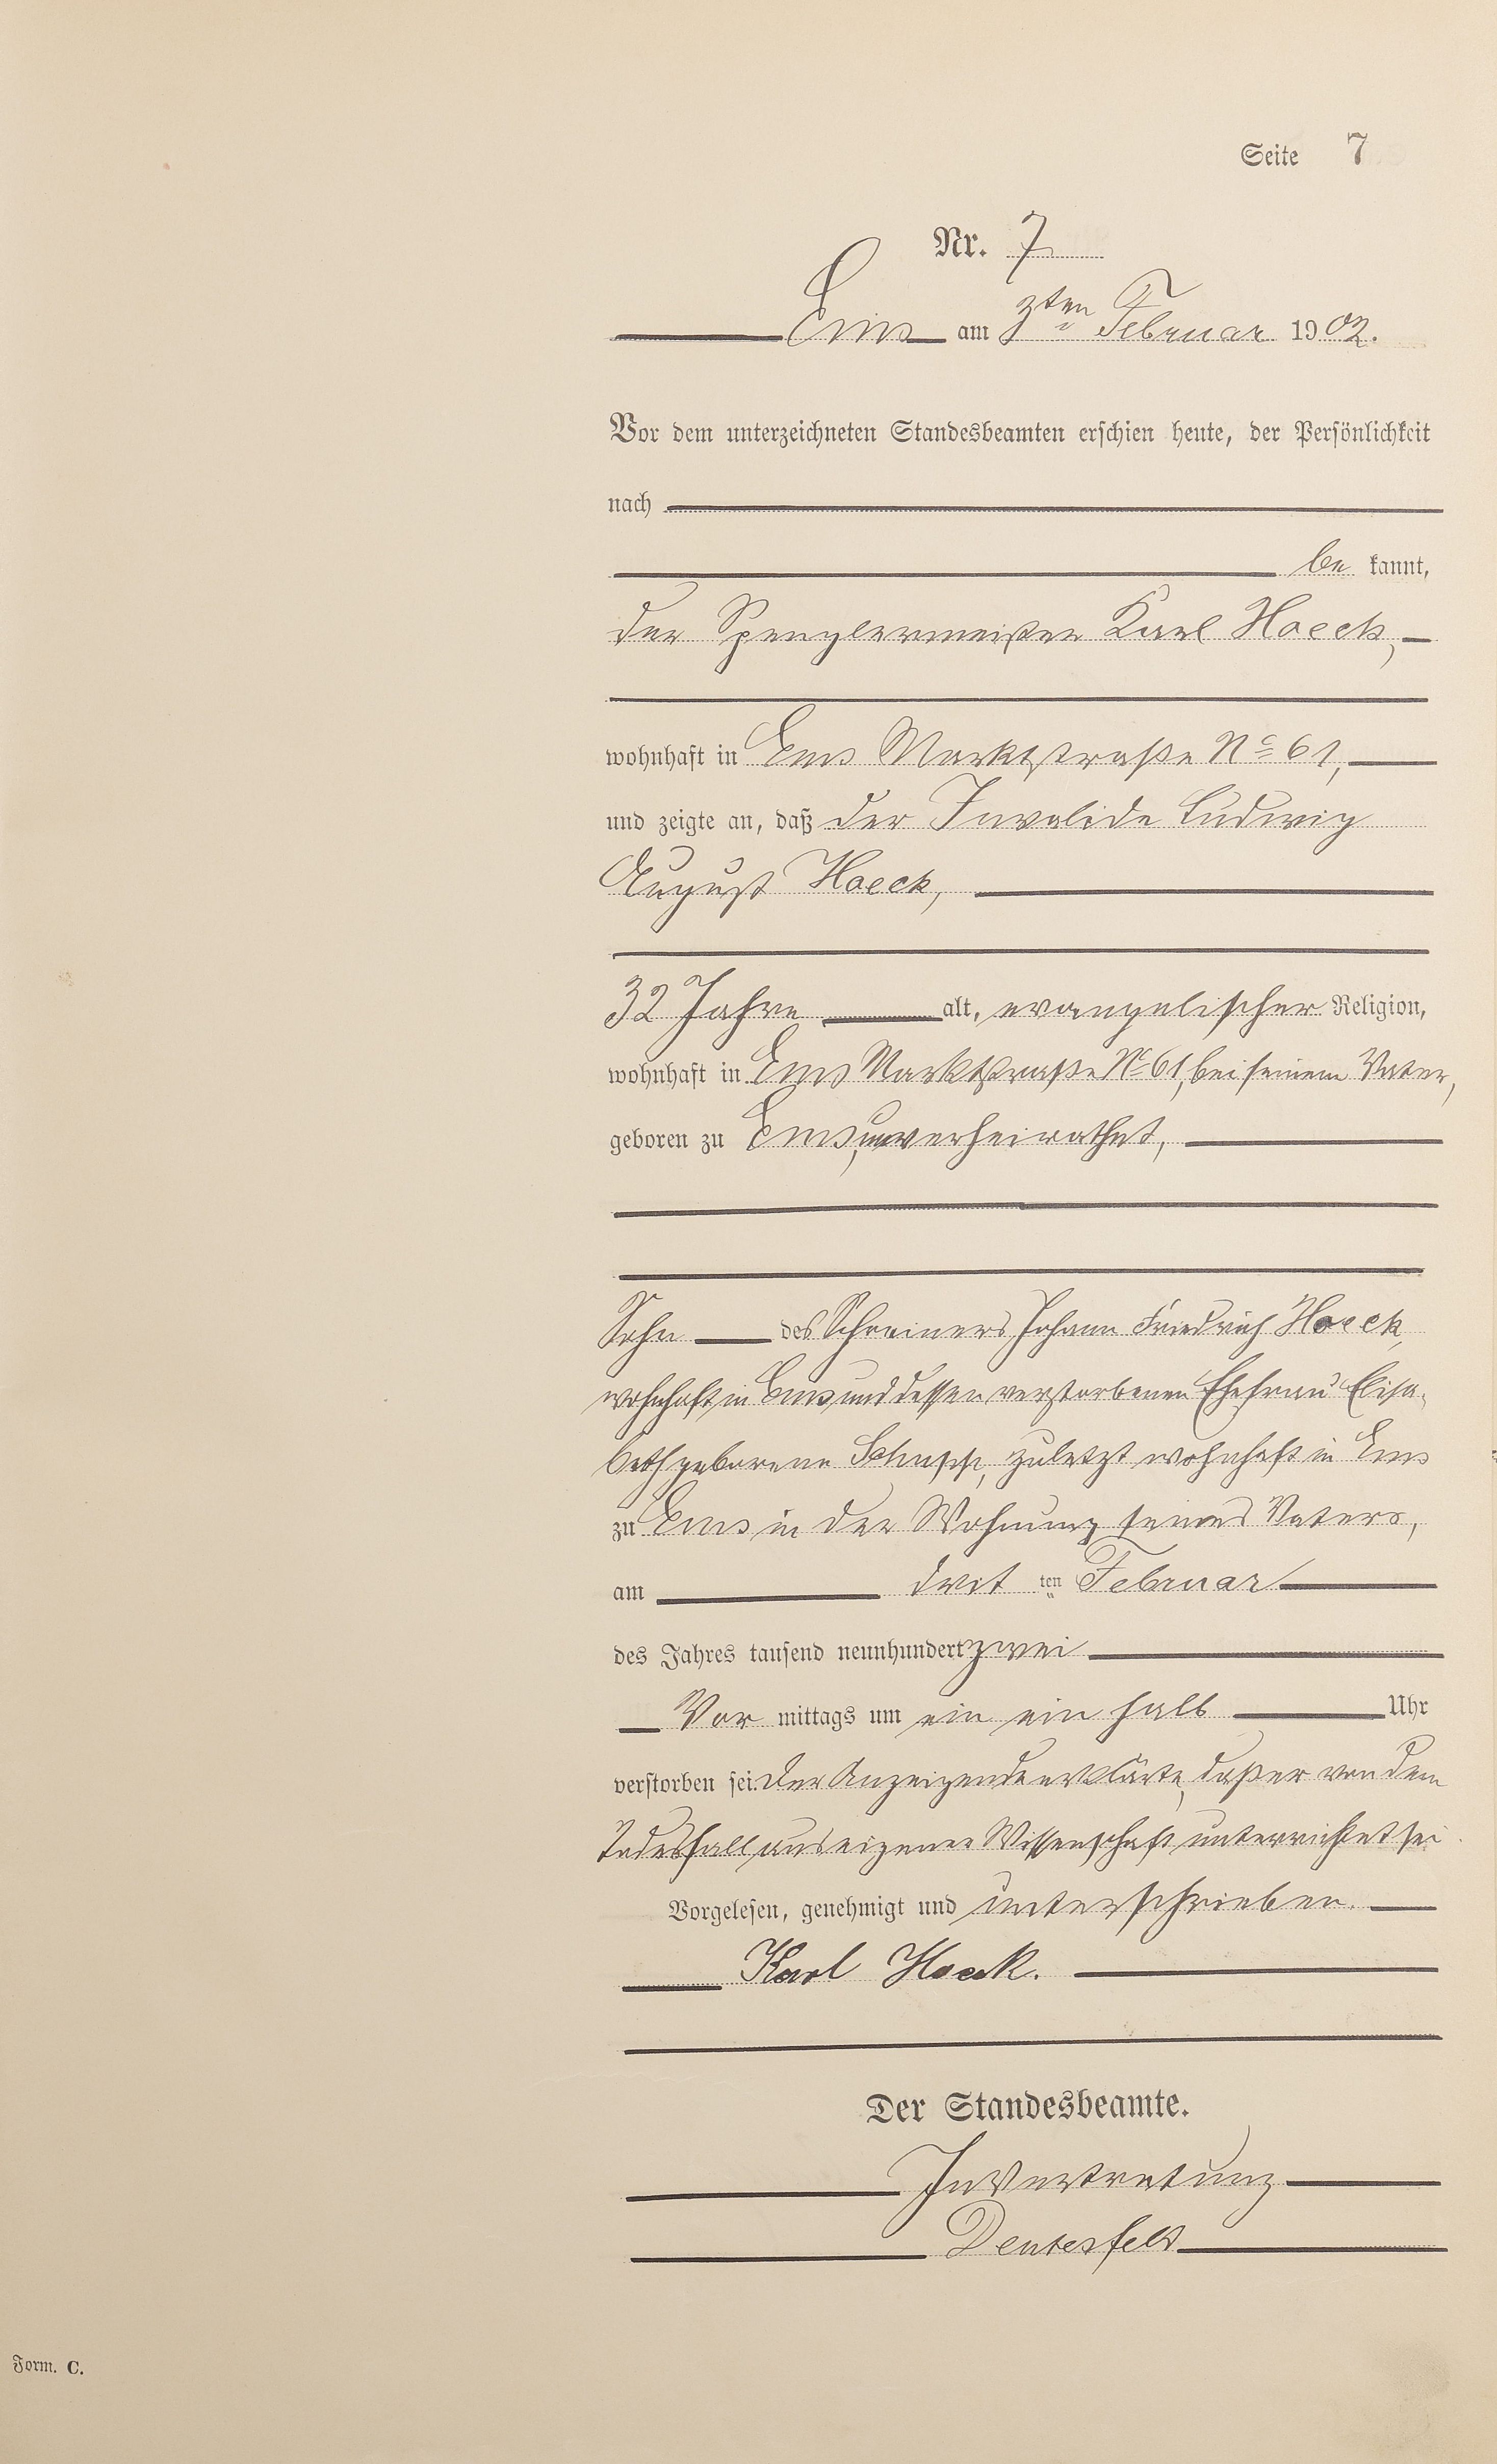 Seite 7
Nr. 7
Ems am 3ten Februar 1902.
Vor dem unterzeichneten Standesbeamten erschien heute, der Persönlichkeit
nach
be kannt,
der Spenglermeister Karl Hoeck,
wohnhaft in Ems Marktstraße No 61,
und zeigte an, daß der Invalide Ludwig
August Hoeck,
32 Jahre alt, evangelischer Religion,
wohnhaft in Ems Marktstraße No 61, bei seinem Vater,
geboren zu Ems, unverheirathet,
Sohn des Schreiners Johann Friedrich Hoeck,
wohnhaft in Ems und dessen verstorbenen Ehefrau Elisa-
beth geborene Schupp, zuletzt wohnhaft in Ems
zu Ems in der Wohnung seines Vaters,
am drit ten Februar
des Jahres tausend neunhundert zwei
Vor mittags um ein ein halb Uhr
verstorben sei. Der Anzeigende erklärte, daß er von dem
Todesfall aus eigener Wissenschaft unterrichtet sei
Vorgelesen, genehmigt und unterschrieben.
Karl Hoeck.
Der Standesbeamte.
In Vertretung
Deutesfeld
Form. C.